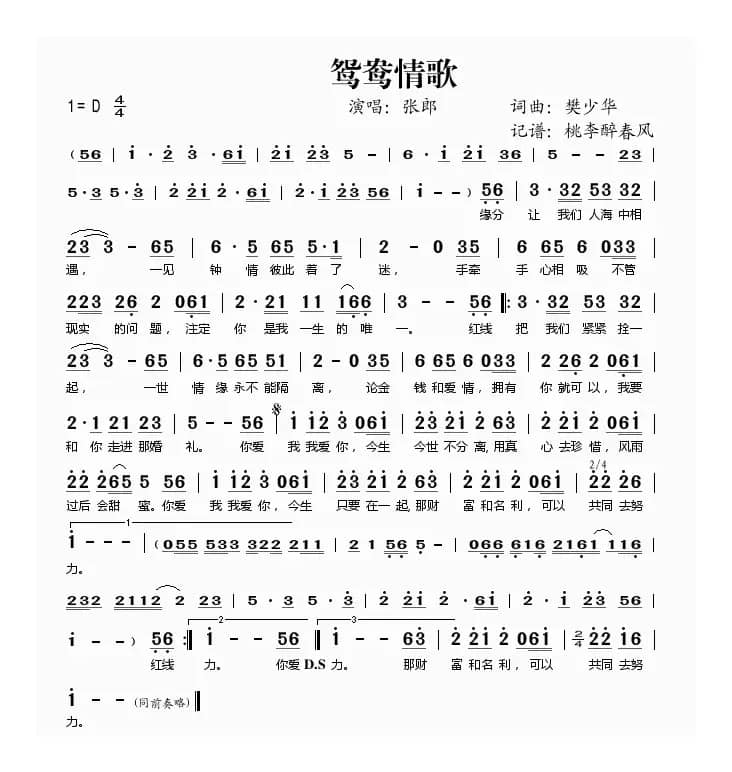 鸳鸯情歌
1=D 4/4 演唱：张郎 词曲：樊少华
记谱：桃李醉春风
(56 | i · 2 3 · 6i | 2i 23 5 - | 6 · i 2i 36 | 5 - - 23
5·3 5·3 | 2 2i 2 · 6i | 2 · i 23 56 | i - - ) 56 | 3 · 32 53 32 |
缘分 让 我们 人海 中相
23 3 - 65 | 6 · 5 65 5·1 | 2 - 0 35 | 6 65 6 033 |
遇， 一见 钟 情 彼此 着 了 迷， 手牵 手 心相 吸 不管
223 26 2 061 | 2 · 21 11 166 | 3 - - 56 ‖: 3 · 32 53 32 |
现实 的问 题，注定 你 是我 一生 的 唯 一。 红线 把 我们 紧紧 拴一
23 3 - 65 | 6·5 65 51 | 2 - 0 35 | 6 65 6 033 | 2 26 2 061 |
起， 一世 情 缘 永不 能隔 离， 论金 钱 和爱 情，拥有 你 就可 以，我要
2 · 1 21 23 | 5 - - 56 | i i2 3 06i | 23 2i 2 63 | 2 2i 2 06i |
和 你 走进 那婚 礼。 你爱 我 我爱 你，今生 今世 不分 离，用真 心 去珍 惜，风雨
2/4
22 265 5 56 | i i2 3 06i | 23 2i 2 63 | 2 2i 2 06i | 22 26 |
过后 会甜 蜜。你爱 我 我爱 你，今生 只要 在一 起，那财 富 和名 利，可以 共同 去努
1
i - - - | (055 533 322 211 | 2 1 56 5 - | 066 616 2161 116 |
力。
232 2112 2 23 | 5 · 3 5 · 3 | 2 2i 2 · 6i | 2 · i 23 56 |
2 3
i - - ) 56 :‖ i - - 56 ‖ i - - 63 | 2 2i 2 06i | 2/4 22 i6 |
红线 力。 你爱 D.S 力。 那财 富 和名 利，可以 共同 去努
i - - (间前奏略) ‖
力。